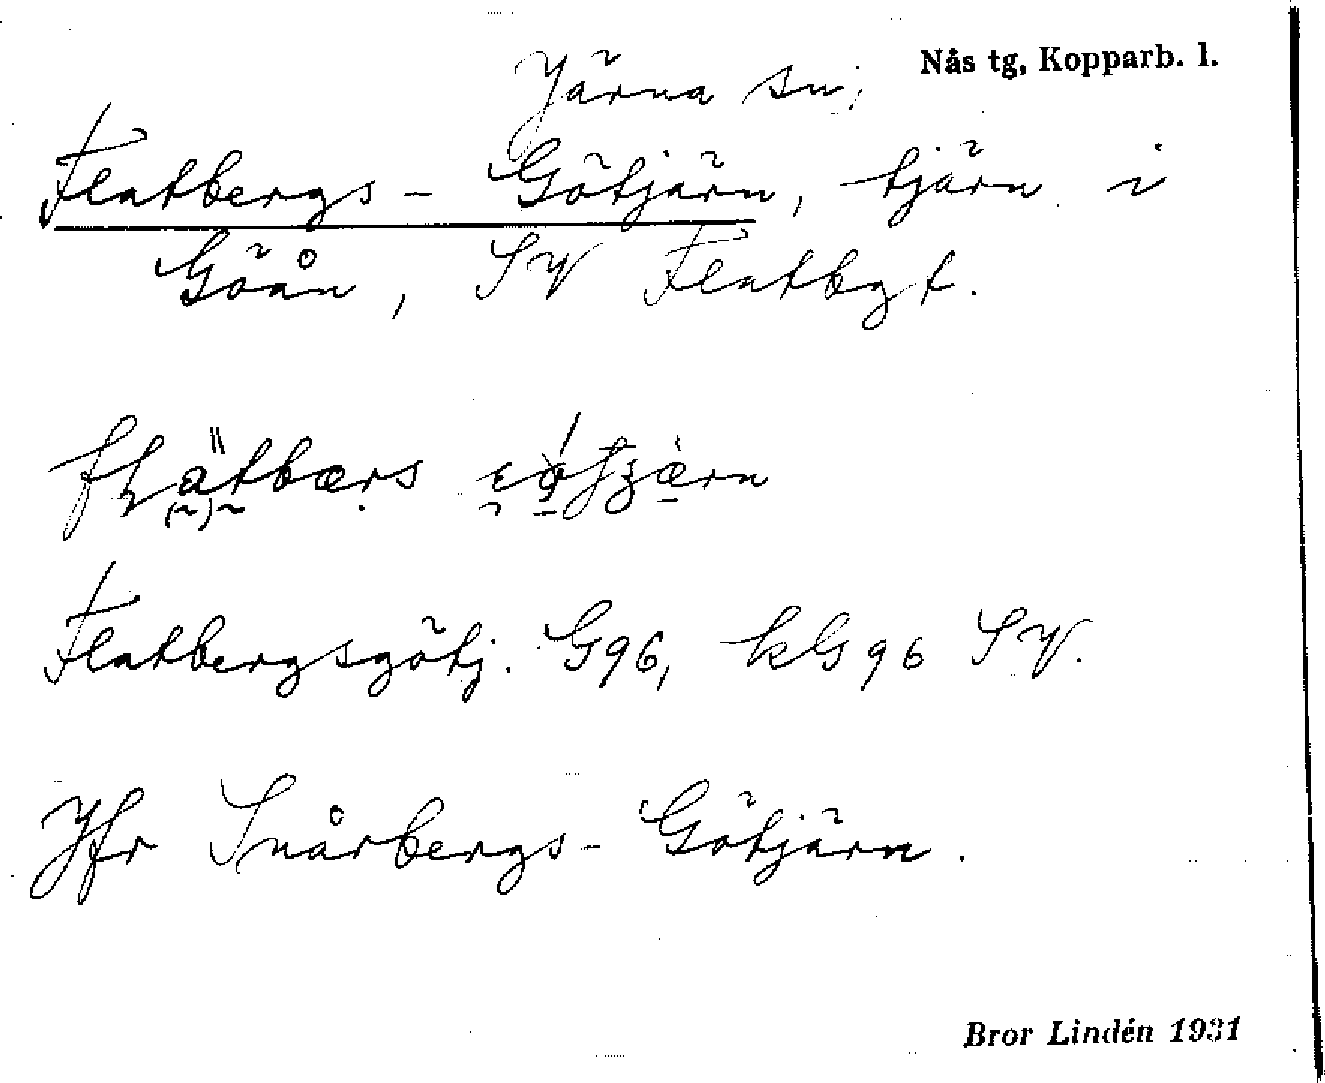 Nås tg, Kopparb. l.
Järna sn;
Flatbergs - Götjärn, tjärn i
Göån, SV Flatbgt.
Flatbergsgötj. G96, kG96 SV.
Jfr Snårbergs - Götjärn.
Bror Lindén 1931